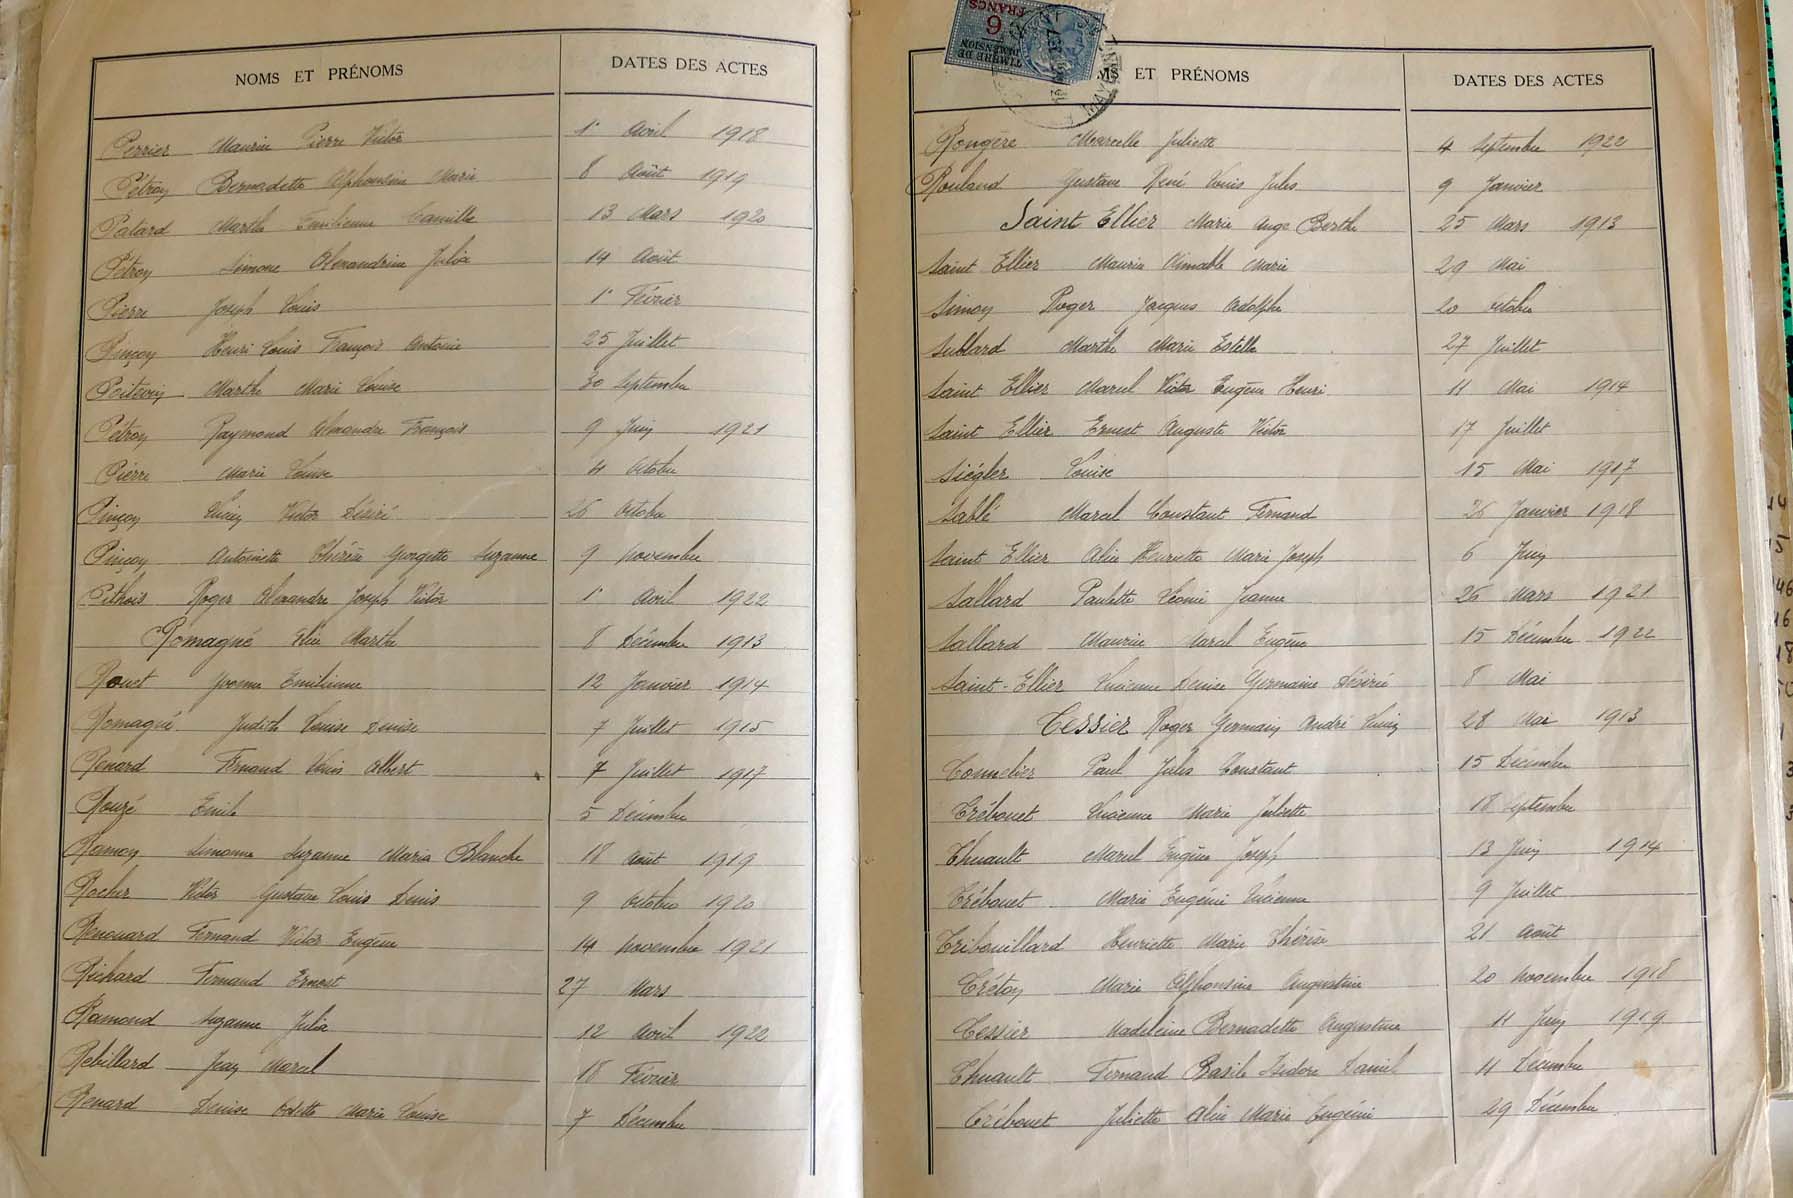 NOMS ET PRÉNOMS DATES DES ACTES
Perrier Maurice Pierre Victor 1er Avril 1918
Pétron Bernadette Alphonsine Marie 8 Août 1919
Patard Marthe Emilienne Camille 13 Mars 1920
Pétron Simone Alexandrine Julia 14 Août
Pierre Joseph Louis 1er Février
Pinçon Henri Louis François Antoine 25 Juillet
Poitevin Marthe Marie Louise 30 Septembre
Pétron Raymond Alexandre François 9 Juin 1921
Pierre Marie Louise 4 Octobre
Pinçon Lucien Victor Désiré 26 Octobre
Pinçon Antoinette Thérèse Georgette Suzanne 9 Novembre
Pithois Roger Alexandre Joseph Victor 1er Avril 1922
Romagné Marthe 8 Décembre 1913
Rouet Yvonne Emilienne 12 Janvier 1914
Romagné Judith Louise Denise 7 Juillet 1915
Renard Fernand Louis Albert 7 Juillet 1917
Rouzé Emile 5 Décembre
Ramon Simonne Suzanne Maria Blanche 18 Août 1919
Rocher Victor Gustave Louis Denis 9 Octobre 1920
Renouard Fernand Victor Eugène 14 Novembre 1921
Richard Fernand Ernest 27 Mars
Ramond Suzanne Julia 12 Avril 1922
Rebillard Jean Marcel 18 Février
Renard Denise Odette Marie Louise 7 Décembre
6 FRANCS
TIMBRE DE
DIMENSION
MS ET PRÉNOMS DATES DES ACTES
Rongère Marcelle Juliette 4 Septembre 1922
Rouland Gustave René Louis Jules 9 Janvier
Saint Ellier Marie Ange Berthe 25 Mars 1913
Saint Ellier Maurice Aimable Marie 29 Mai
Simon Roger Jacques Adolphe 20 Octobre
Sublard Marthe Marie Estelle 27 Juillet
Saint Ellier Marcel Victor Eugène Henri 11 Mai 1914
Saint Ellier Ernest Auguste Victor 17 Juillet
Siégler Louise 15 Mai 1917
Sablé Marcel Constant Fernand 26 Janvier 1918
Saint Ellier Alice Henriette Marie Joseph 6 Juin
Sallard Paulette Léonie Jeanne 26 Mars 1921
Sallard Maurice Marcel Eugène 15 Décembre 1922
Saint-Ellier Lucienne Denise Germaine Désirée 8 Mai
Tessier Roger Germain André Lucien 28 Mai 1913
Tonnelier Paul Jules Constant 15 Décembre
Trébouet Lucienne Marie Juliette 18 Septembre
Thuault Marcel Eugène Joseph 13 Juin 1914
Trébouet Marie Eugénie Lucienne 9 Juillet
Tribouillard Henriette Marie Thérèse 21 Août
Créton Marie Alphonsine Augustine 20 Novembre 1918
Tessier Madeleine Bernadette Augustine 11 Juin 1919
Thuault Fernand Basile Isidore Daniel 11 Décembre
Trébouet Juliette Alice Marie Eugénie 29 Décembre